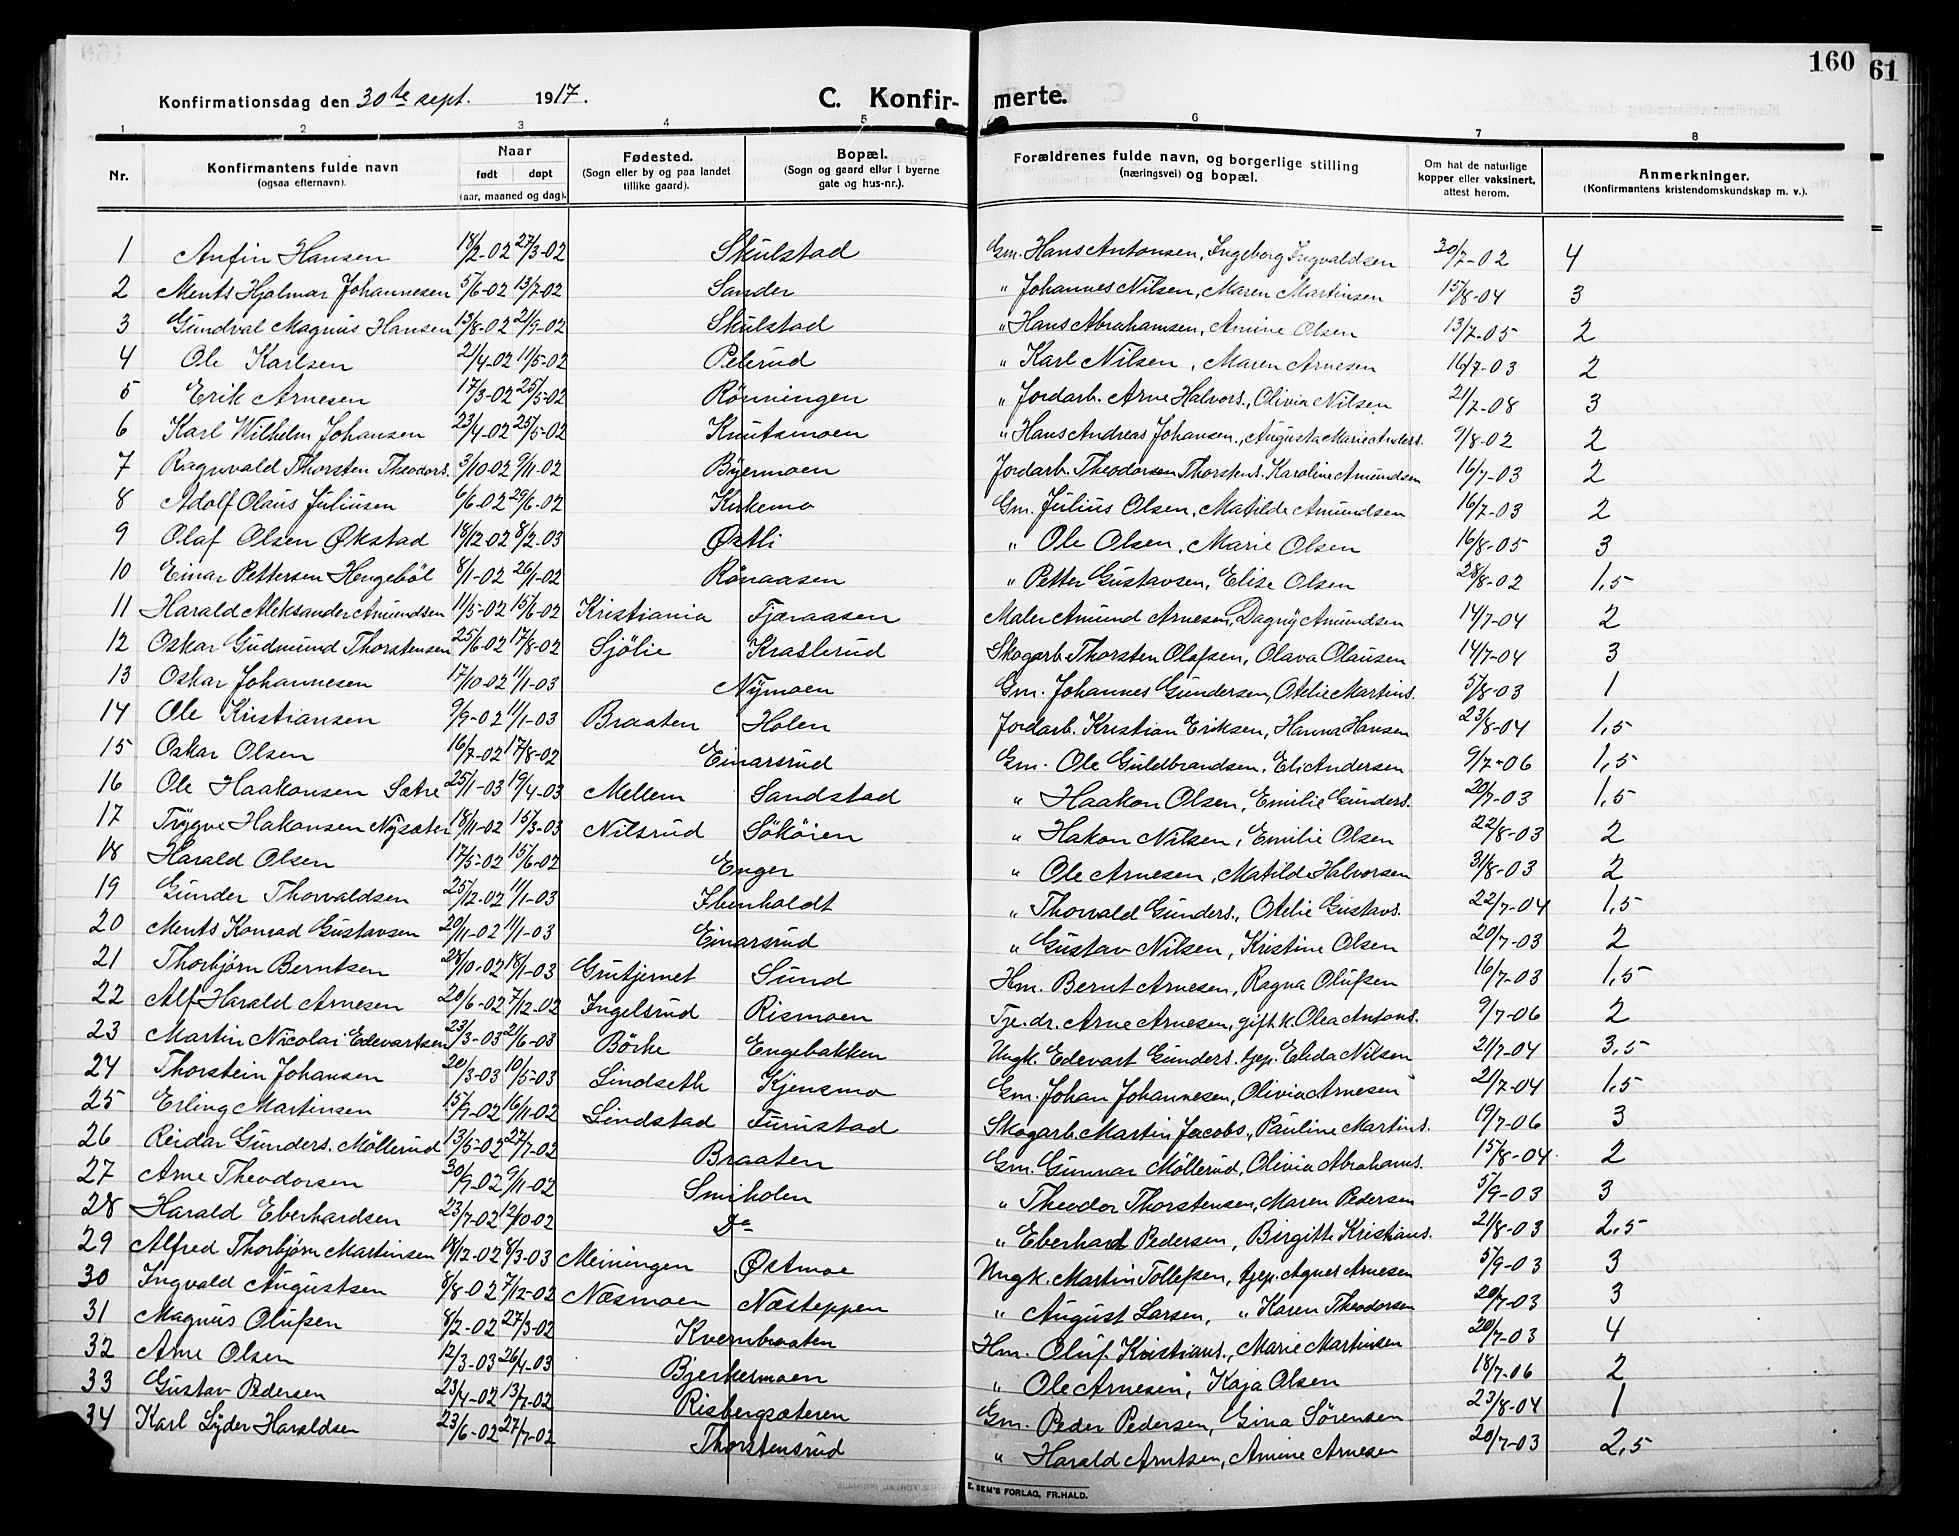 160
61
Konfirmationsdag den 30te sept. 1917.
C. Konfir- merte.
1 2 3 4 5 6 7 8
Nr. Konfirmantens fulde navn (ogsaa efternavn). Naar født døpt (aar, maaned og dag). Fødested. (Sogn eller by og paa landet tillike gaard). Bopæl. (Sogn og gaard eller i byerne gate og hus-nr.). Forældrenes fulde navn, og borgerlige stilling (næringsvei) og bopæl. Om hat de naturlige kopper eller vaksinert, attest herom. Anmerkninger. (Konfirmantens kristendomskundskap m. v.).
1 Anfin Hansen 18/2-02 27/3-02 Skulstad Gm. Hans Antonsen, Ingeborg Ingvaldsen 30/7-02 4
2 Ments Hjalmar Johannesen 5/6-02 13/7-02 Sander " Johannes Nilsen, Maren Martinsen 15/8-04 3
3 Gundval Magnus Hansen 13/8-02 21/9-02 Skulstad " Hans Abrahamsen, Amine Olsen 13/7-05 2
4 Ole Karlsen 21/4-02 11/5-02 Peterud " Karl Nilsen, Maren Arnesen 16/7-03 2
5 Erik Arnesen 17/3-02 25/5-02 Rönningen " Jordarb. Arne Halvors., Olivia Nilsen 21/7-08 3
6 Karl Wilhelm Johansen 23/4-02 25/5-02 Knutsmoen " Hans Andreas Johansen, Augusta Marie Anders. 9/8-02 2
7 Ragnvald Thorsten Theodors. 3/10-02 9/11-02 Byermoen Jordarb. Theodorsen Thorstens. Karoline Amundsen 16/7-03 2
8 Adolf Olaus Juliusen 6/6-02 29/6-02 Kirkemo Gm. Julius Olsen, Matilde Amundsen 16/7-03 2
9 Olaf Olsen Økstad 18/12-02 8/2-03 Østli " Ole Olsen, Marie Olsen 16/8-05 3
10 Einar Pettersen Hengeböl 8/1-02 26/1-02 Rönaasen " Petter Gustavsen, Elise Olsen 28/8-02 1,5
11 Harald Aleksander Amundsen 11/5-02 15/6-02 Kristiania Fjæraasen Maler Amund Arnesen, Dagny Amundsen 14/7-04 2
12 Oskar Gudmund Thorstensen 25/6-02 17/8-02 Sjölie Kraslerud Skogarb. Thorsten Olafsen, Olava Olausen 14/7-04 3
13 Oskar Johannesen 17/10-02 11/1-03 Nymoen Gm. Johannes Gundersen, Otelie Martins. 5/8-03 1
14 Ole Kristiansen 9/9-02 11/1-03 Braaten Holen Jordarb. Kristian Eriksen, Hanna Hansen 23/8-04 1,5
15 Oskar Olsen 16/7-02 17/8-02 Einarsrud Gm. Ole Guldbrandsen, Eli Andersen 9/7-06 1,5
16 Ole Haakonsen Sætre 25/1-03 19/4-03 Mellem Sandstad " Haakon Olsen, Emilie Gunders. 20/7-03 1,5
17 Tryggve Hakonsen Nysæter 18/11-02 15/3-03 Nilsrud Sököien " Hakon Nilsen, Emilie Olsen 22/8-03 2
18 Harald Olsen 17/5-02 15/6-02 Enger " Ole Arnesen, Matilde Halvorsen 31/8-03 2
19 Gunder Thorvaldsen 25/12-02 11/1-03 Ibenholdt " Thorvald Gunders., Otelie Gustavs. 22/7-04 1,5
20 Ments Konrad Gustavsen 20/11-02 11/1-03 Einarsrud " Gustav Nilsen, Kristine Olsen 20/7-03 2
21 Thorbjørn Berntsen 28/10-02 18/1-03 Grutjernet Sund Hm. Bernt Arnesen, Ragna Olufsen 16/7-03 1,5
22 Alf Harald Arnesen 20/6-02 7/12-02 Ingelsrud Rismoen Tje.dr. Arne Arnesen, gift k. Olea Antons. 9/7-06 2
23 Martin Nicolai Edevartsen 23/3-03 21/6-03 Börke Engebakken Ungk. Edevart Gunders. tjep. Elida Nilsen 21/7-04 3,5
24 Thorstein Johansen 20/3-03 10/5-03 Lindseth Kjensmo Gm. Johan Johannesen, Olivia Arnesen 21/7-04 1,5
25 Erling Martinsen 15/9-02 16/11-02 Lindstad Furustad Skogarb. Martin Jacobs., Pauline Martins. 19/7-06 3
26 Reidar Gunders. Möllerud 13/5-02 27/7-02 Braaten Gm. Gunnar Möllerud, Olivia Abrahams. 15/8-04 2
27 Arne Theodorsen 30/9-02 9/11-02 Smiholen " Theodor Thorstensen, Maren Pedersen 5/9-03 3
28 Harald Eberhardsen 23/7-02 12/10-02 Do " Eberhard Pedersen, Birgitte Kristians. 21/8-03 2,5
29 Alfred Thorbjørn Martinsen 18/12-02 8/3-03 Meiningen Østmoe Ungk. Martin Tollefsen, tjep. Agnes Arnesen 5/9-03 3
30 Ingvald Augustsen 8/8-02 7/12-02 Næsmoen Næsteppen " August Larsen, " Karen Theodorsen 20/7-03 3
31 Magnus Olufsen 8/2-02 27/3-02 Kvernbraaten Hm. Oluf Kristians., Marie Martinsen 20/7-03 4
32 Arne Olsen 12/3-03 26/4-03 Bjerkermoen " Ole Arnesen, Kaja Olsen 18/7-06 2
33 Gustav Pedersen 23/4-02 13/7-02 Risbergsæteren Gm. Peder Pedersen, Gina Sörensen 23/8-04 1
34 Karl Lyder Haraldsen 23/6-02 27/7-02 Thorstensrud " Harald Arntsen, Amine Arnesen 20/7-03 2,5
E. SEM'S FORLAG, FR.HALD.